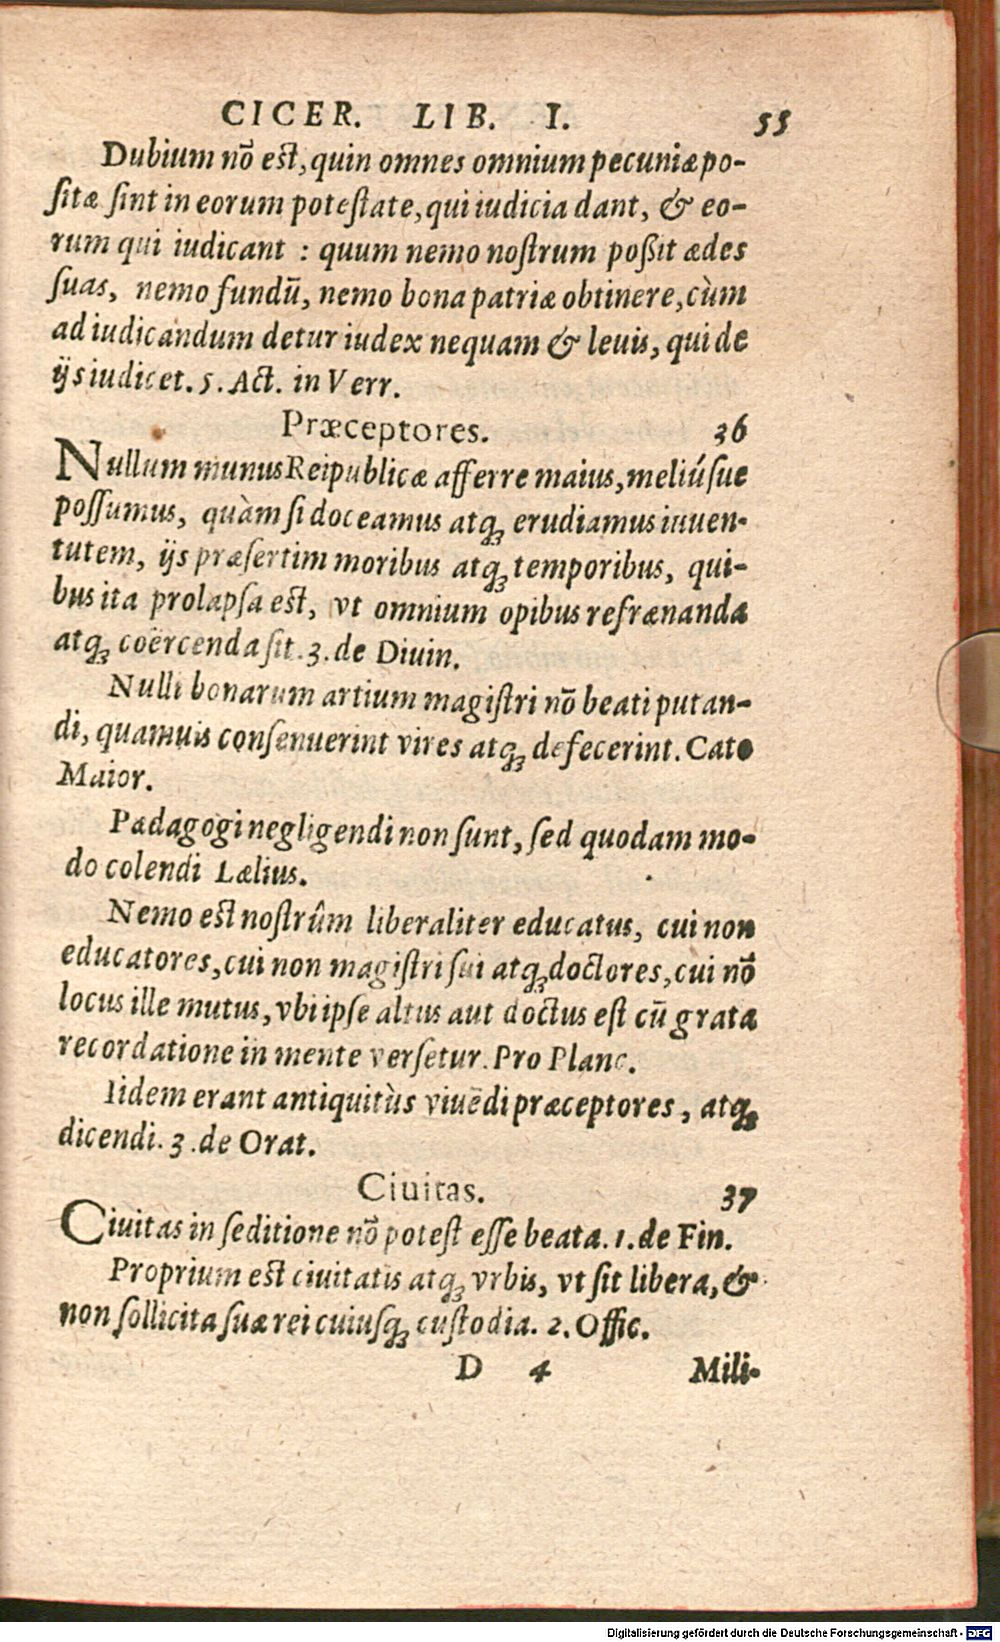 CICER. LIB. I. 55
Dubium nõ est, quin omnes omnium pecuniæ po-
sitæ ſint in eorum poteſtate, qui iudicia dant, & eo-
rum qui iudicant : quum nemo noſtrum poßit ædes
ſuas, nemo fundũ, nemo bona patriæ obtinere, cùm
ad iudicandum detur iudex nequam & leuis, qui de
ijs iudicet. 5. Act. in Verr.
Præceptores. 36
Nullum munus Reipublicæ afferre maius, meliúſue
poſſumus, quàm ſi doceamus atq; erudiamus iuuen-
tutem, ijs præſertim moribus atq; temporibus, qui-
bus ita prolapſa est, vt omnium opibus refrænanda
atq; coërcenda ſit. 3. de Diuin.
Nulli bonarum artium magiſtri nõ beati putan-
di, quamuis conſenuerint vires atq; defecerint. Cato
Maior.
Pædagogi negligendi non ſunt, ſed quodam mo-
do colendi Lælius.
Nemo est noſtrûm liberaliter educatus, cui non
educatores, cui non magiſtri ſui atq; doctores, cui nõ
locus ille mutus, vbi ipſe altus aut doctus eſt cũ grata
recordatione in mente verſetur. Pro Planc.
Iidem erant antiquitùs viuẽdi præceptores, atq;
dicendi. 3. de Orat.
Ciuitas. 37
Ciuitas in ſeditione nõ poteſt eſſe beata. 1. de Fin.
Proprium est ciuitatis atq; vrbis, vt ſit libera, &
non ſollicita ſuæ rei cuiuſq; cuſtodia. 2. Offic.
D 4 Mili-
Digitalisierung gefördert durch die Deutsche Forschungsgemeinschaft - DFG